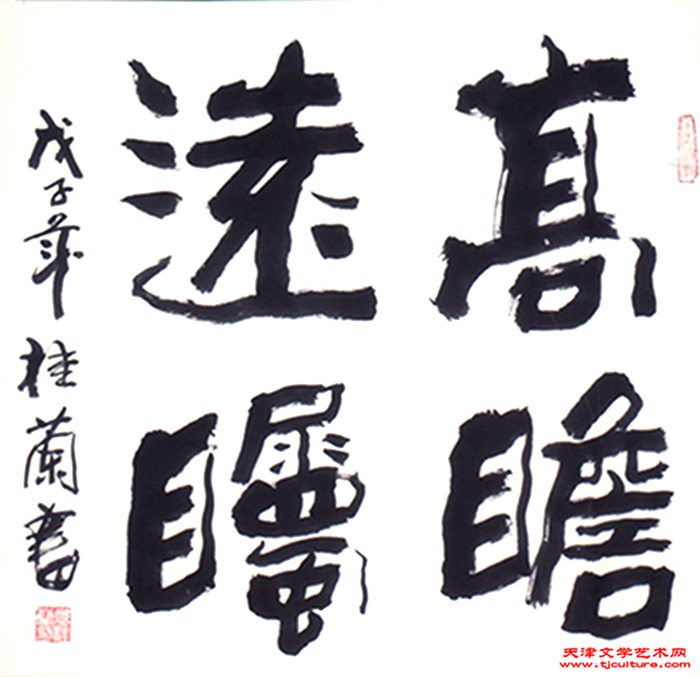 高瞻
遠矚
戊子年桂蘭書
天津文学艺术网
www.tjculture.com